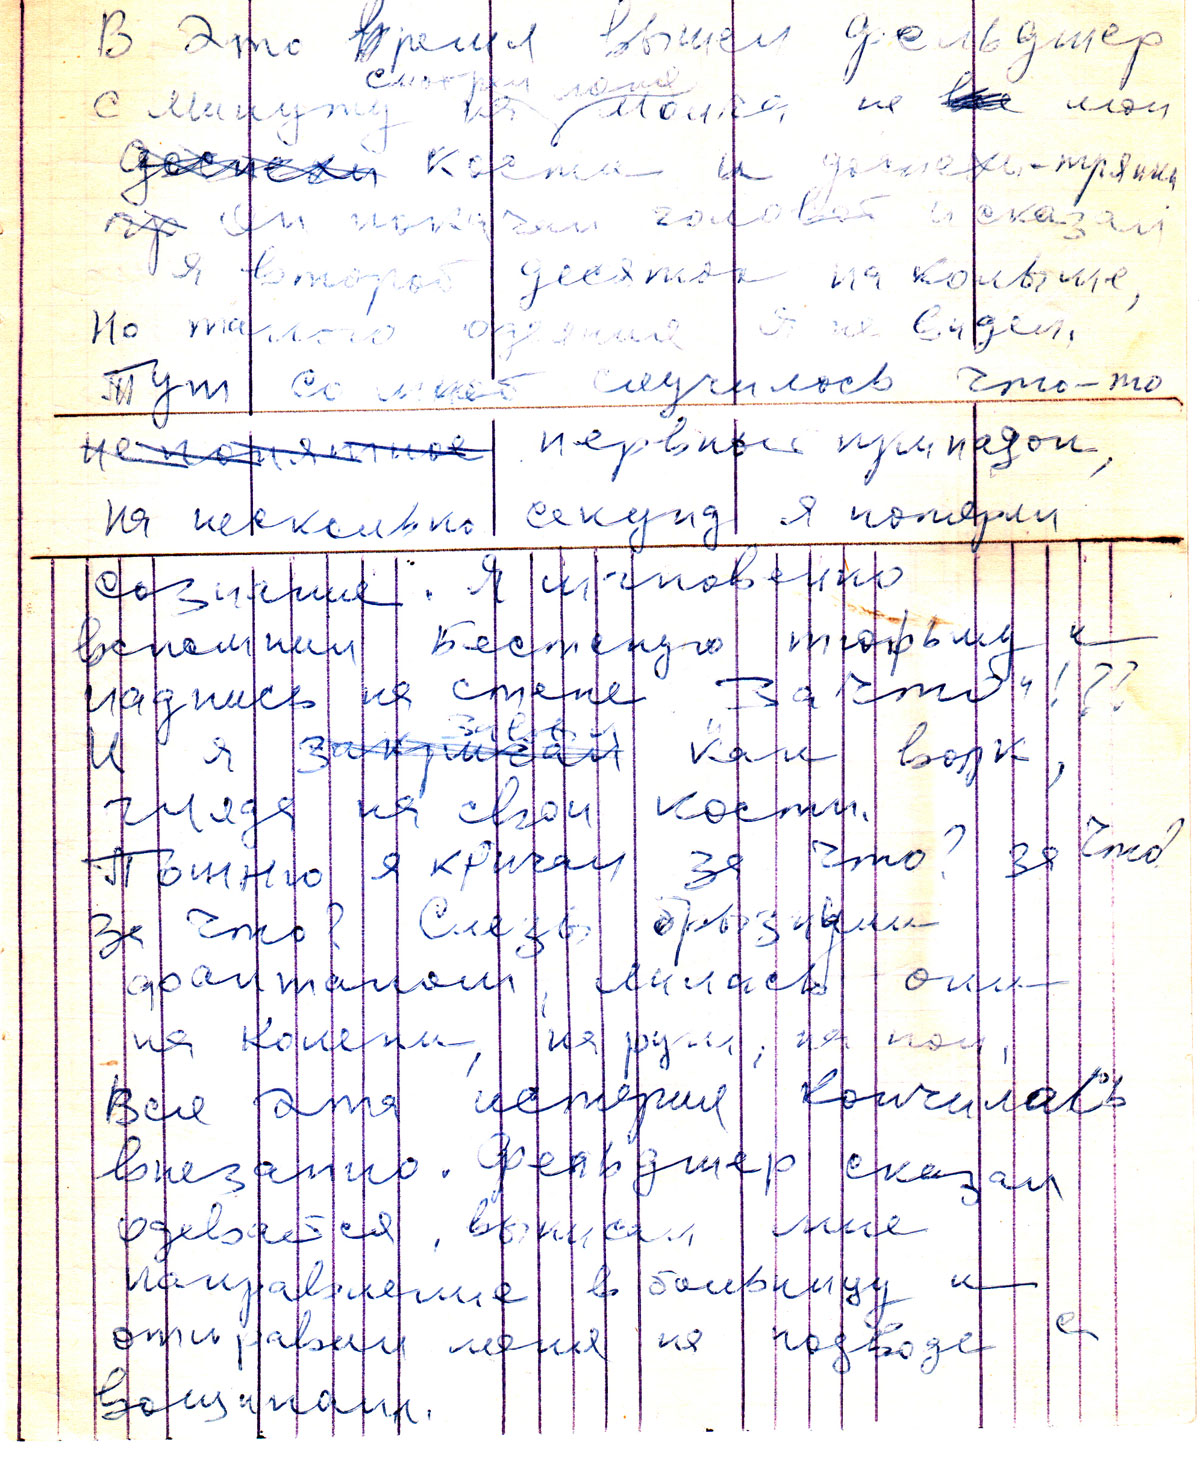 В это время вышел фельдшер
смотрил
с минуту на меня молча, на все мои
доспехи кости и доспехи-тряпки
Он покачал головой и сказал
я второй десяток на колыме,
Но такого одеяния я не видел.
Тут со мной случилось что-то
непонятное нервный припадок,
на несколько секунд я потерял
сознание. Я мгновенно
вспомнил тюрьму и
надпись на стене "За что"!??
завыл
И я закричал как волк,
глядя на свои кости.
Помню я кричал за что? за что?
За что? Слезы брызнули
фонтаном, лились они
на колени, на руки, на пол,
Вся эта истерия кончилась
внезапно. Фельдшер сказал
одевайся, выписал мне
направление в больницу и
отправил меня на подводе с